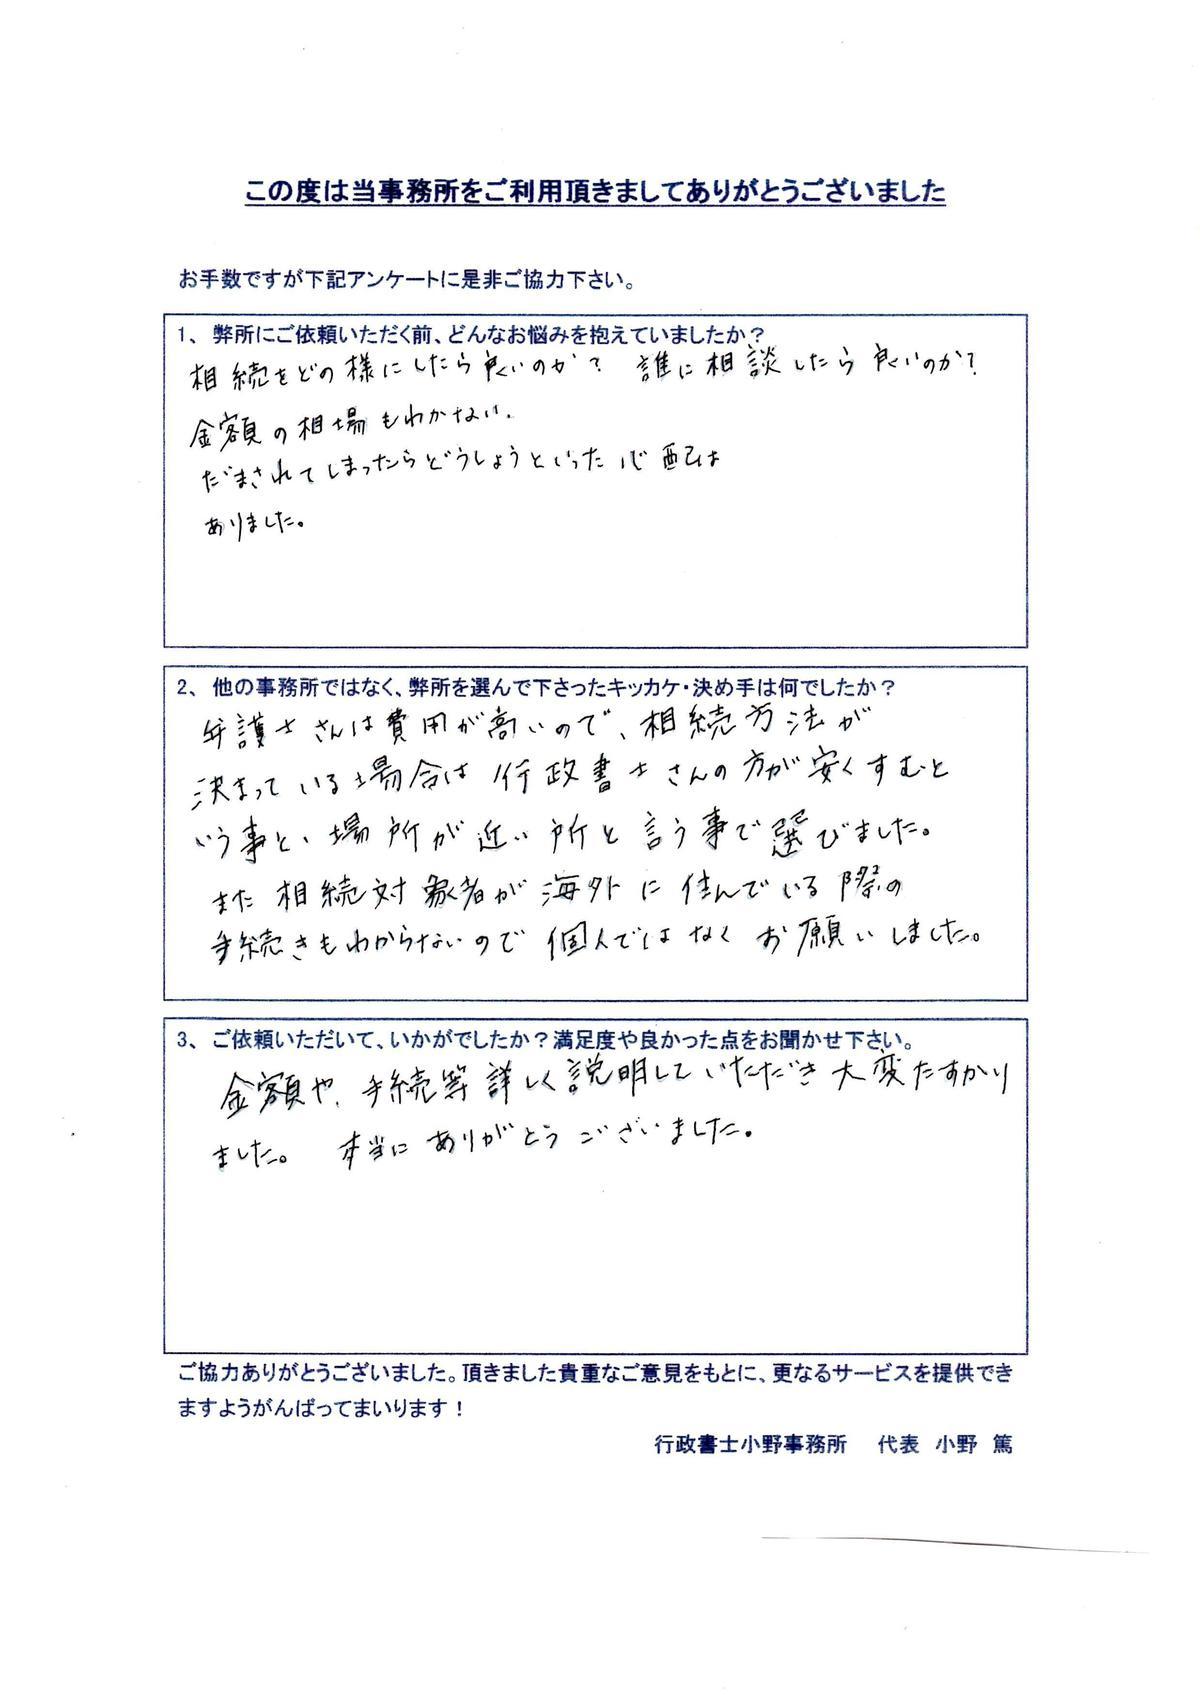 この度は当事務所をご利用頂きましてありがとうございました
お手数ですが下記アンケートに是非ご協力下さい。
1、 弊所にご依頼いただく前、どんなお悩みを抱えていましたか？
相続をどの様にしたら良いのか？ 誰に相談したら良いのか？
金額の相場もわかない.
だまされてしまったらどうしようといった心配は
ありました。
2、 他の事務所ではなく、弊所を選んで下さったキッカケ・決め手は何でしたか？
弁護士さんは費用が高いので、相続方法が
決まっている場合は行政書士さんの方が安くすむと
いう事と、場所が近い所と言う事で選びました。
また相続対象者が海外に住んでいる際の
手続きもわからないので個人ではなくお願いしました。
3、 ご依頼いただいて、いかがでしたか？満足度や良かった点をお聞かせ下さい。
金額や、手続等詳しく説明していただき大変たすかり
ました。 本当にありがとうございました。
ご協力ありがとうございました。頂きました貴重なご意見をもとに、更なるサービスを提供でき
ますようがんばってまいります！
行政書士小野事務所 代表 小野 篤